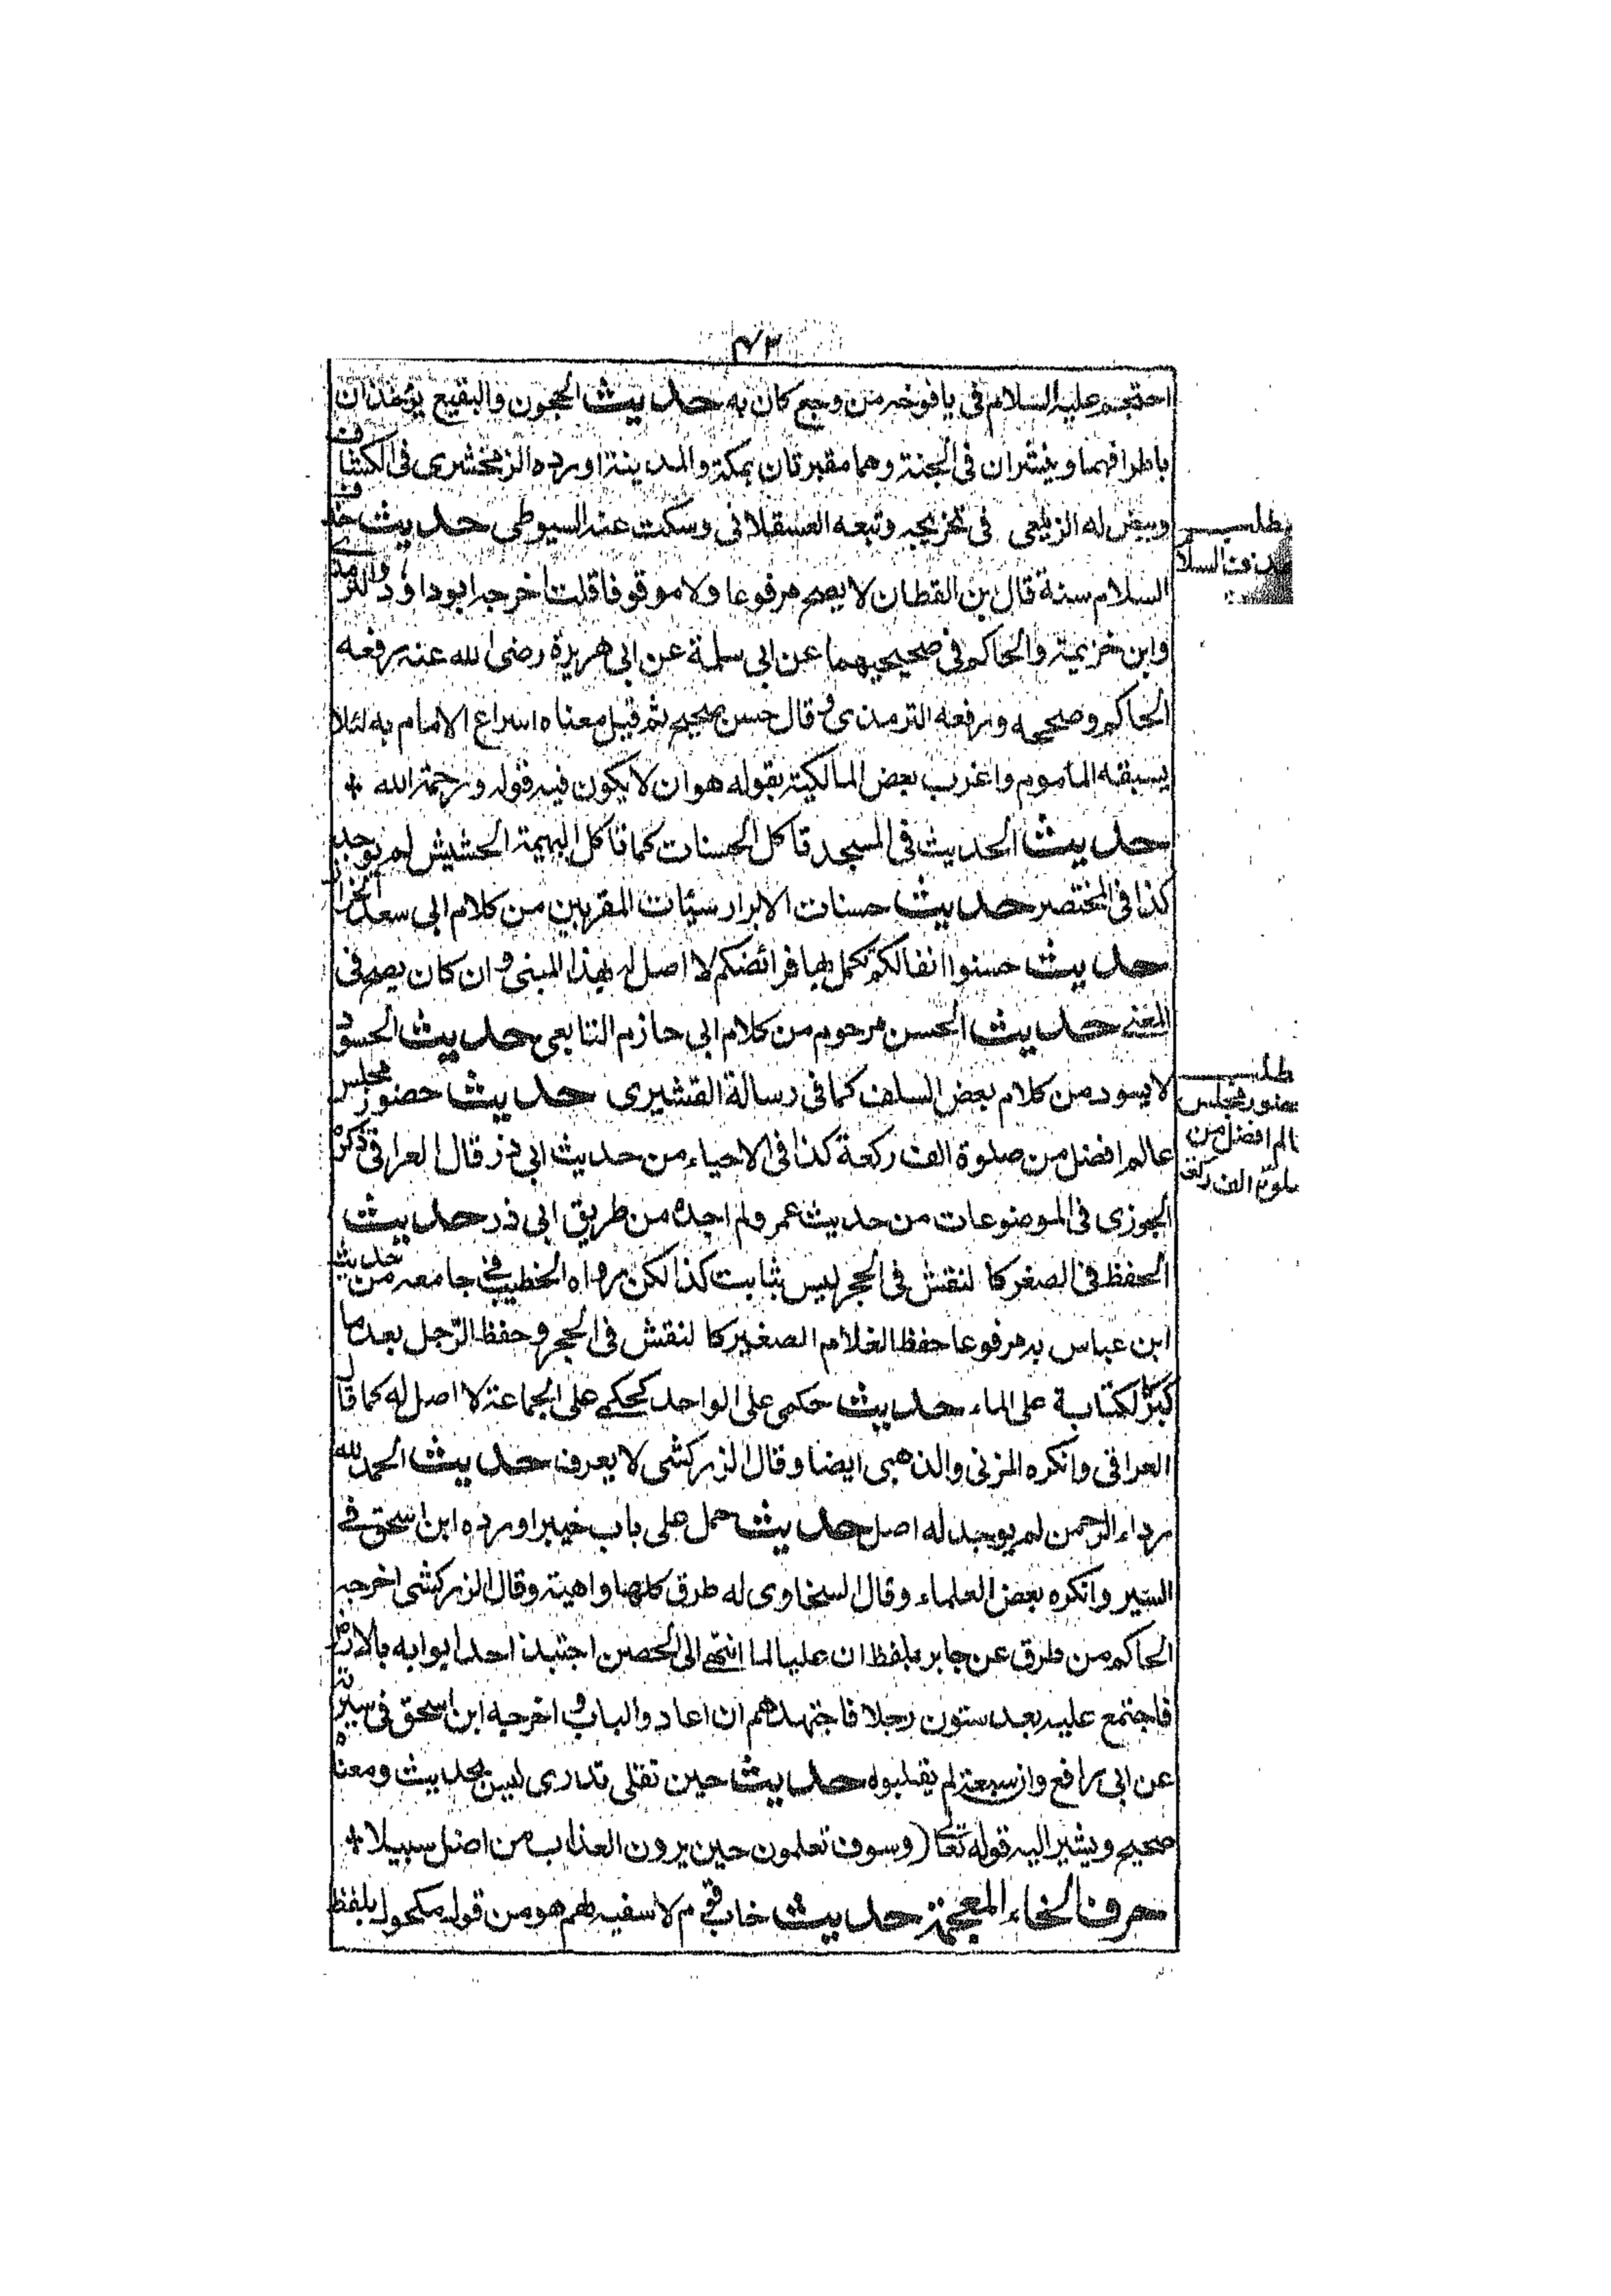 ٤٣
احتجم عليه السلام في يافوخه من وجع كان به حديث الحجون والبقيع يؤخذان
باطرافهما وينثران في الجنة وهما مقبرتان بمكة والمدينة اورده الزمخشرى في الكشاف
وبيض له الزيلعي في تخريجه وتبعه العسقلانى وسكت عنه السيوطى حديث حذف
السلام سنة قال ابن القطان لا يصح مرفوعا ولا موقوفا قلت اخرجه ابوداود والترمذى
وابن خزيمة والحاكم في صحيحيهما عن ابى سلمة عن ابى هريرة رضى الله عنه رفعه
الحاكم وصححه ورفعه الترمذى وقال حسن صحيح ثم قيل معناه اسراع الامام به لئلا
يسبقه الماموم واغرب بعض المالكية بقوله هو ان لا يكون فيه قوله ورحمة الله *
حديث الحديث في المسجد تاكل الحسنات كما تاكل البهيمة الحشيش لم يوجد
كذا في المختصر حديث حسنات الابرار سيئات المقربين من كلام ابى سعد الخراز
حديث حسنوا نفالكم تكمل بها فرائضكم لا اصل له بهذا المبنى وان كان يصح في
المعنى حديث الحسن مرحوم من كلام ابى حازم التابعى حديث الحسود
لا يسود من كلام بعض السلف كما في رسالة القشيرى حديث حضور مجلس
عالم افضل من صلوة الف ركعة كذا في الاحياء من حديث ابى ذر قال العراقى ذكره
الجوزى في الموضوعات من حديث عمر ولم اجده من طريق ابى ذر حديث
الحفظ في الصغر كالنقش في الحجر ليس بثابت كذا لكن رواه الخطيب في جامعه من حديث
ابن عباس به مرفوعا حفظ الغلام الصغير كالنقش في الحجر وحفظ الرجل بعد ما
كبر كالكتابة على الماء حديث حكمى على الواحد كحكمى على الجماعة لا اصل له كما قال
العراقى وانكره المزنى والذهبى ايضا وقال الزركشى لا يعرف حديث الحمد لله
رداء الرحمن لم يوجد له اصل حديث حمل على باب خيبر اورده ابن اسحق في
السير وانكره بعض العلماء وقال السخاوى له طرق كلها واهية وقال الزركشى اخرجه
الحاكم من طرق عن جابر بلفظ ان عليا لما انتهى الى الحصن اجتبذ احد ابوابه بالارض
فاجتمع عليه بعد ستون رجلا فاجتهدهم ان اعادوا الباب واخرجه ابن اسحق في سيرته
عن ابى رافع وان سبعة لم يقلبوه حديث حين تقلى تدرى ليس بحديث ومعناه
صحيح ويشير اليه قوله تعالى (وسوف تعلمون حين يرون العذاب من اضل سبيلا *
حرف الخاء المعجمة حديث خاب قوم لا سفيه لهم هو من قول مكحول بلفظ
مطلب
حذف السلا
مطلب
حضور مجلس
عالم افضل من
صلوة الف ركعة